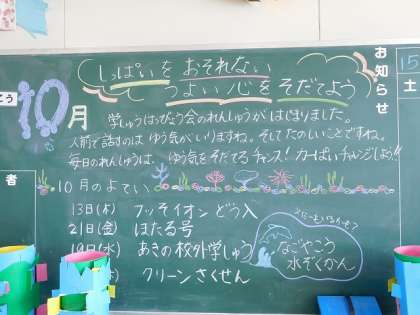 お知らせ
15
土
こう
10月
しっぱいを おそれない
つよい心を そだてよう
学しゅうはっぴょう会のれんしゅうがはじまりました。
人前で話すのは ゆう気がいりますね。そしてたのしいことですね。
毎日のれんしゅうは、ゆう気をそだてるチャンス!カーぱいチャレンジしよう!!
者
10月のよてい
13日(木) フッそイオン どう入
21日(金) ほたる号
19日(水) あきの校外学しゅう
クリーンさくせん
なごやこう
水ぞくかん